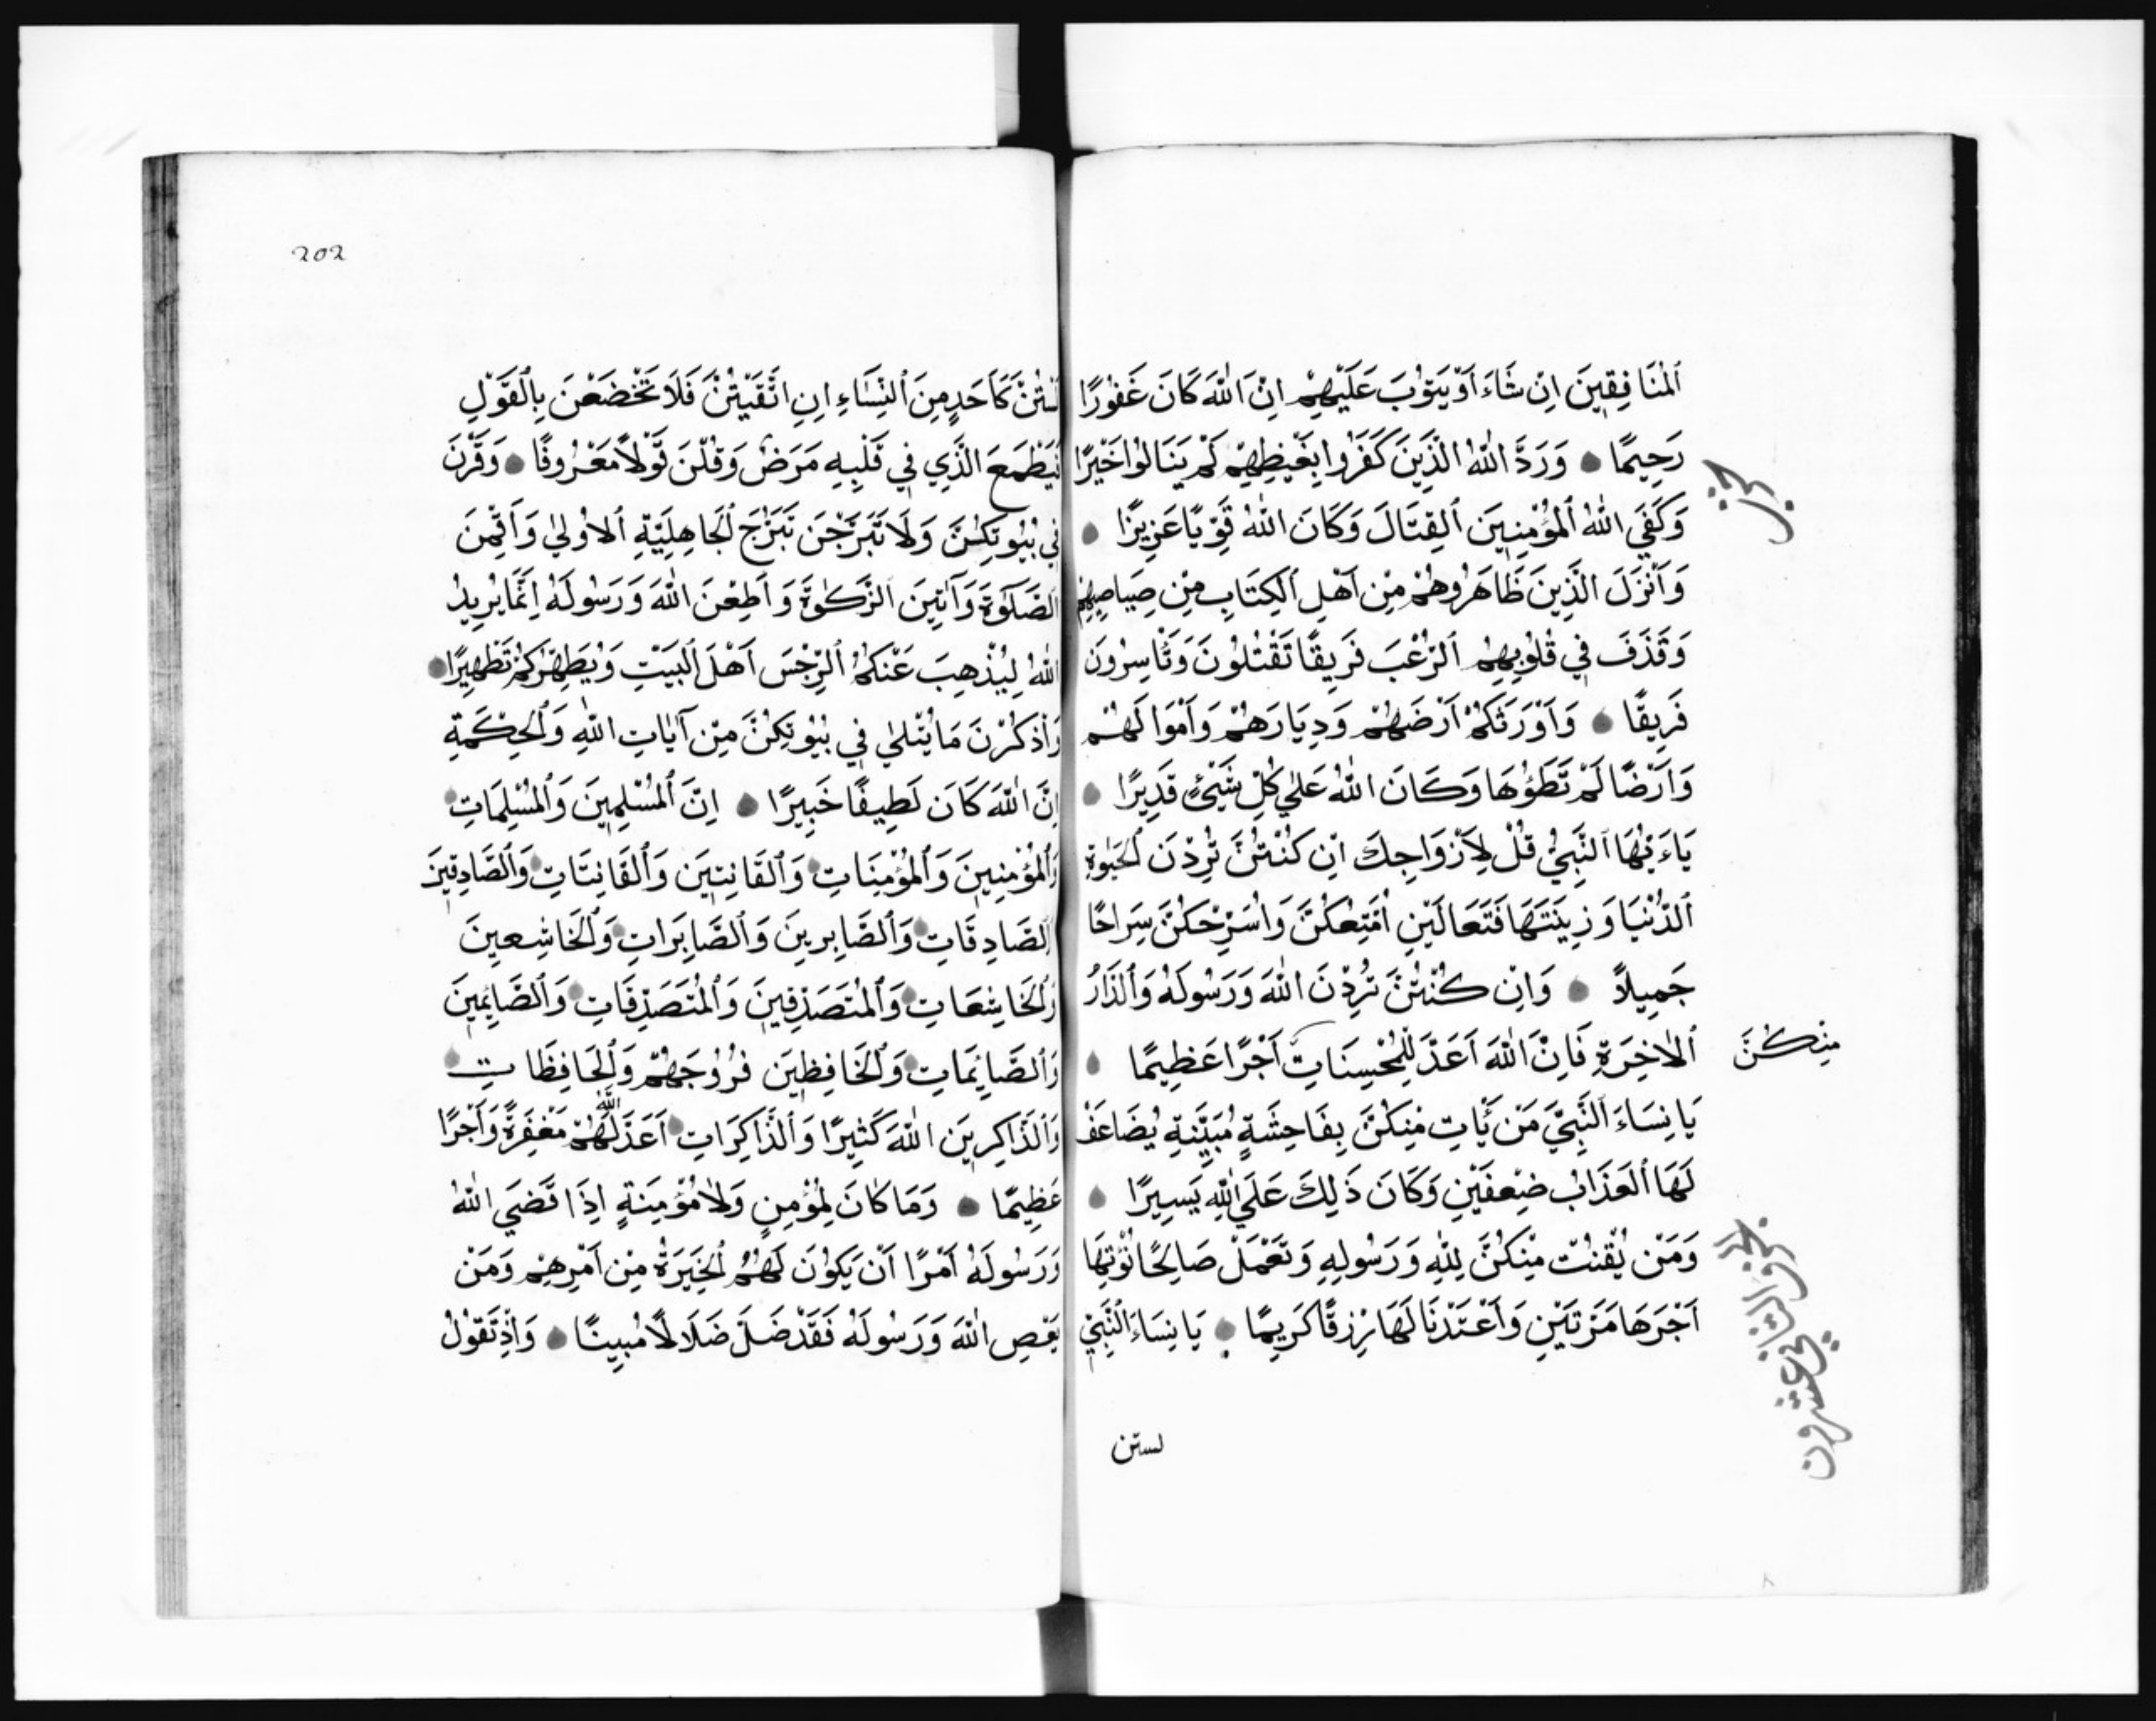 اَلْمُنَافِقِينَ اِنْ شَاءَ اَوْ يَتُوبَ عَلَيْهِمْ اِنَّ اللّٰهَ كَانَ غَفُورًا
رَحِيمًا وَرَدَّ اللّٰهُ الَّذِينَ كَفَرُوا بِغَيْظِهِمْ لَمْ يَنَالُوا خَيْرًا
حزب
وَكَفَي اللّٰهُ اَلْمُؤْمِنِينَ اَلْقِتَالَ وَكَانَ اللّٰهُ قَوِيًّا عَزِيزًا
وَاَنْزَلَ الَّذِينَ ظَاهَرُوهُمْ مِنْ اَهْلِ اَلْكِتَابِ مِنْ صَيَاصِيهِمْ
وَقَذَفَ فِي قُلُوبِهِمُ اَلرُّعْبَ فَرِيقًا تَقْتُلُونَ وَتَأْسِرُونَ
فَرِيقًا وَاَوْرَثَكُمْ اَرْضَهُمْ وَدِيَارَهُمْ وَاَمْوَالَهُمْ
وَاَرْضًا لَمْ تَطَؤُهَا وَكَانَ اللّٰهُ عَلٰي كُلِّ شَيْئٍ قَدِيرًا
يَاءَيُّهَا اَلنَّبِيُّ قُلْ لِاَزْوَاجِكَ اِنْ كُنْتُنَّ تُرِدْنَ اَلْحَيٰوةَ
اَلدُّنْيَا وَزِينَتَهَا فَتَعَالَيْنَ اُمَتِّعْكُنَّ وَاُسَرِّحْكُنَّ سَرَاحًا
جَمِيلاً وَاِنْ كُنْتُنَّ تُرِدْنَ اللّٰهَ وَرَسُولَهُ وَاَلدَّارَ
اَلْاٰخِرَةِ فَاِنَّ اللّٰهَ اَعَدَّ لِلْمُحْسِنَاتِ اَجْرًا عَظِيمًا
مِنْكُنَّ
يَا نِسَاءَ اَلنَّبِيِّ مَنْ يَّأْتِ مِنْكُنَّ بِفَاحِشَةٍ مُبَيِّنَةٍ يُضَاعَفْ
لَهَا اَلْعَذَابُ ضِعْفَيْنِ وَكَانَ ذٰلِكَ عَلَي اللّٰهِ يَسِيرًا
وَمَنْ يَّقْنُتْ مِنْكُنَّ لِلّٰهِ وَرَسُولِهِ وَتَعْمَلْ صَالِحًا نُؤْتِهَا
اَجْرَهَا مَرَّتَيْنِ وَاَعْتَدْنَا لَهَا رِزْقًا كَرِيمًا يَا نِسَاءَ اَلنَّبِيِّ
الجزو الثاني عشرون
لستن
202
لَسْتُنَّ كَاَحَدٍ مِنَ اَلنِّسَاءِ اِنِ اتَّقَيْتُنَّ فَلَا تَخْضَعْنَ بِالْقَوْلِ
فَيَطْمَعَ الَّذِي فِي قَلْبِهِ مَرَضٌ وَقُلْنَ قَوْلاً مَعْرُوفًا وَقَرْنَ
فِي بُيُوتِكُنَّ وَلَا تَبَرَّجْنَ تَبَرُّجَ اَلْجَاهِلِيَّةِ اَلْاُولٰي وَاَقِمْنَ
اَلصَّلٰوةَ وَآتِينَ اَلزَّكٰوةَ وَاَطِعْنَ اللّٰهَ وَرَسُولَهُ اِنَّمَا يُرِيدُ
اللّٰهُ لِيُذْهِبَ عَنْكُمُ اَلرِّجْسَ اَهْلَ اَلْبَيْتِ وَيُطَهِّرَكُمْ تَطْهِيرًا
وَاذْكُرْنَ مَا يُتْلٰي فِي بُيُوتِكُنَّ مِنْ آيَاتِ اللّٰهِ وَاَلْحِكْمَةِ
اِنَّ اللّٰهَ كَانَ لَطِيفًا خَبِيرًا اِنَّ اَلْمُسْلِمِينَ وَاَلْمُسْلِمَاتِ
وَاَلْمُؤْمِنِينَ وَاَلْمُؤْمِنَاتِ وَاَلْقَانِتِينَ وَاَلْقَانِتَاتِ وَاَلصَّادِقِينَ
وَاَلصَّادِقَاتِ وَاَلصَّابِرِينَ وَاَلصَّابِرَاتِ وَاَلْخَاشِعِينَ
وَاَلْخَاشِعَاتِ وَاَلْمُتَصَدِّقِينَ وَاَلْمُتَصَدِّقَاتِ وَاَلصَّائِمِينَ
وَاَلصَّائِمَاتِ وَاَلْحَافِظِينَ فُرُوجَهُمْ وَاَلْحَافِظَاتِ
وَاَلذَّاكِرِينَ اللّٰهَ كَثِيرًا وَاَلذَّاكِرَاتِ اَعَدَّ اللّٰهُ لَهُمْ مَغْفِرَةً وَاَجْرًا
عَظِيمًا وَمَا كَانَ لِمُؤْمِنٍ وَلَا مُؤْمِنَةٍ اِذَا قَضَي اللّٰهُ
وَرَسُولُهُ اَمْرًا اَنْ يَكُونَ لَهُمُ اَلْخِيَرَةُ مِنْ اَمْرِهِمْ وَمَنْ
يَعْصِ اللّٰهَ وَرَسُولَهُ فَقَدْ ضَلَّ ضَلَالًا مُبِينًا وَاِذْ تَقُولُ